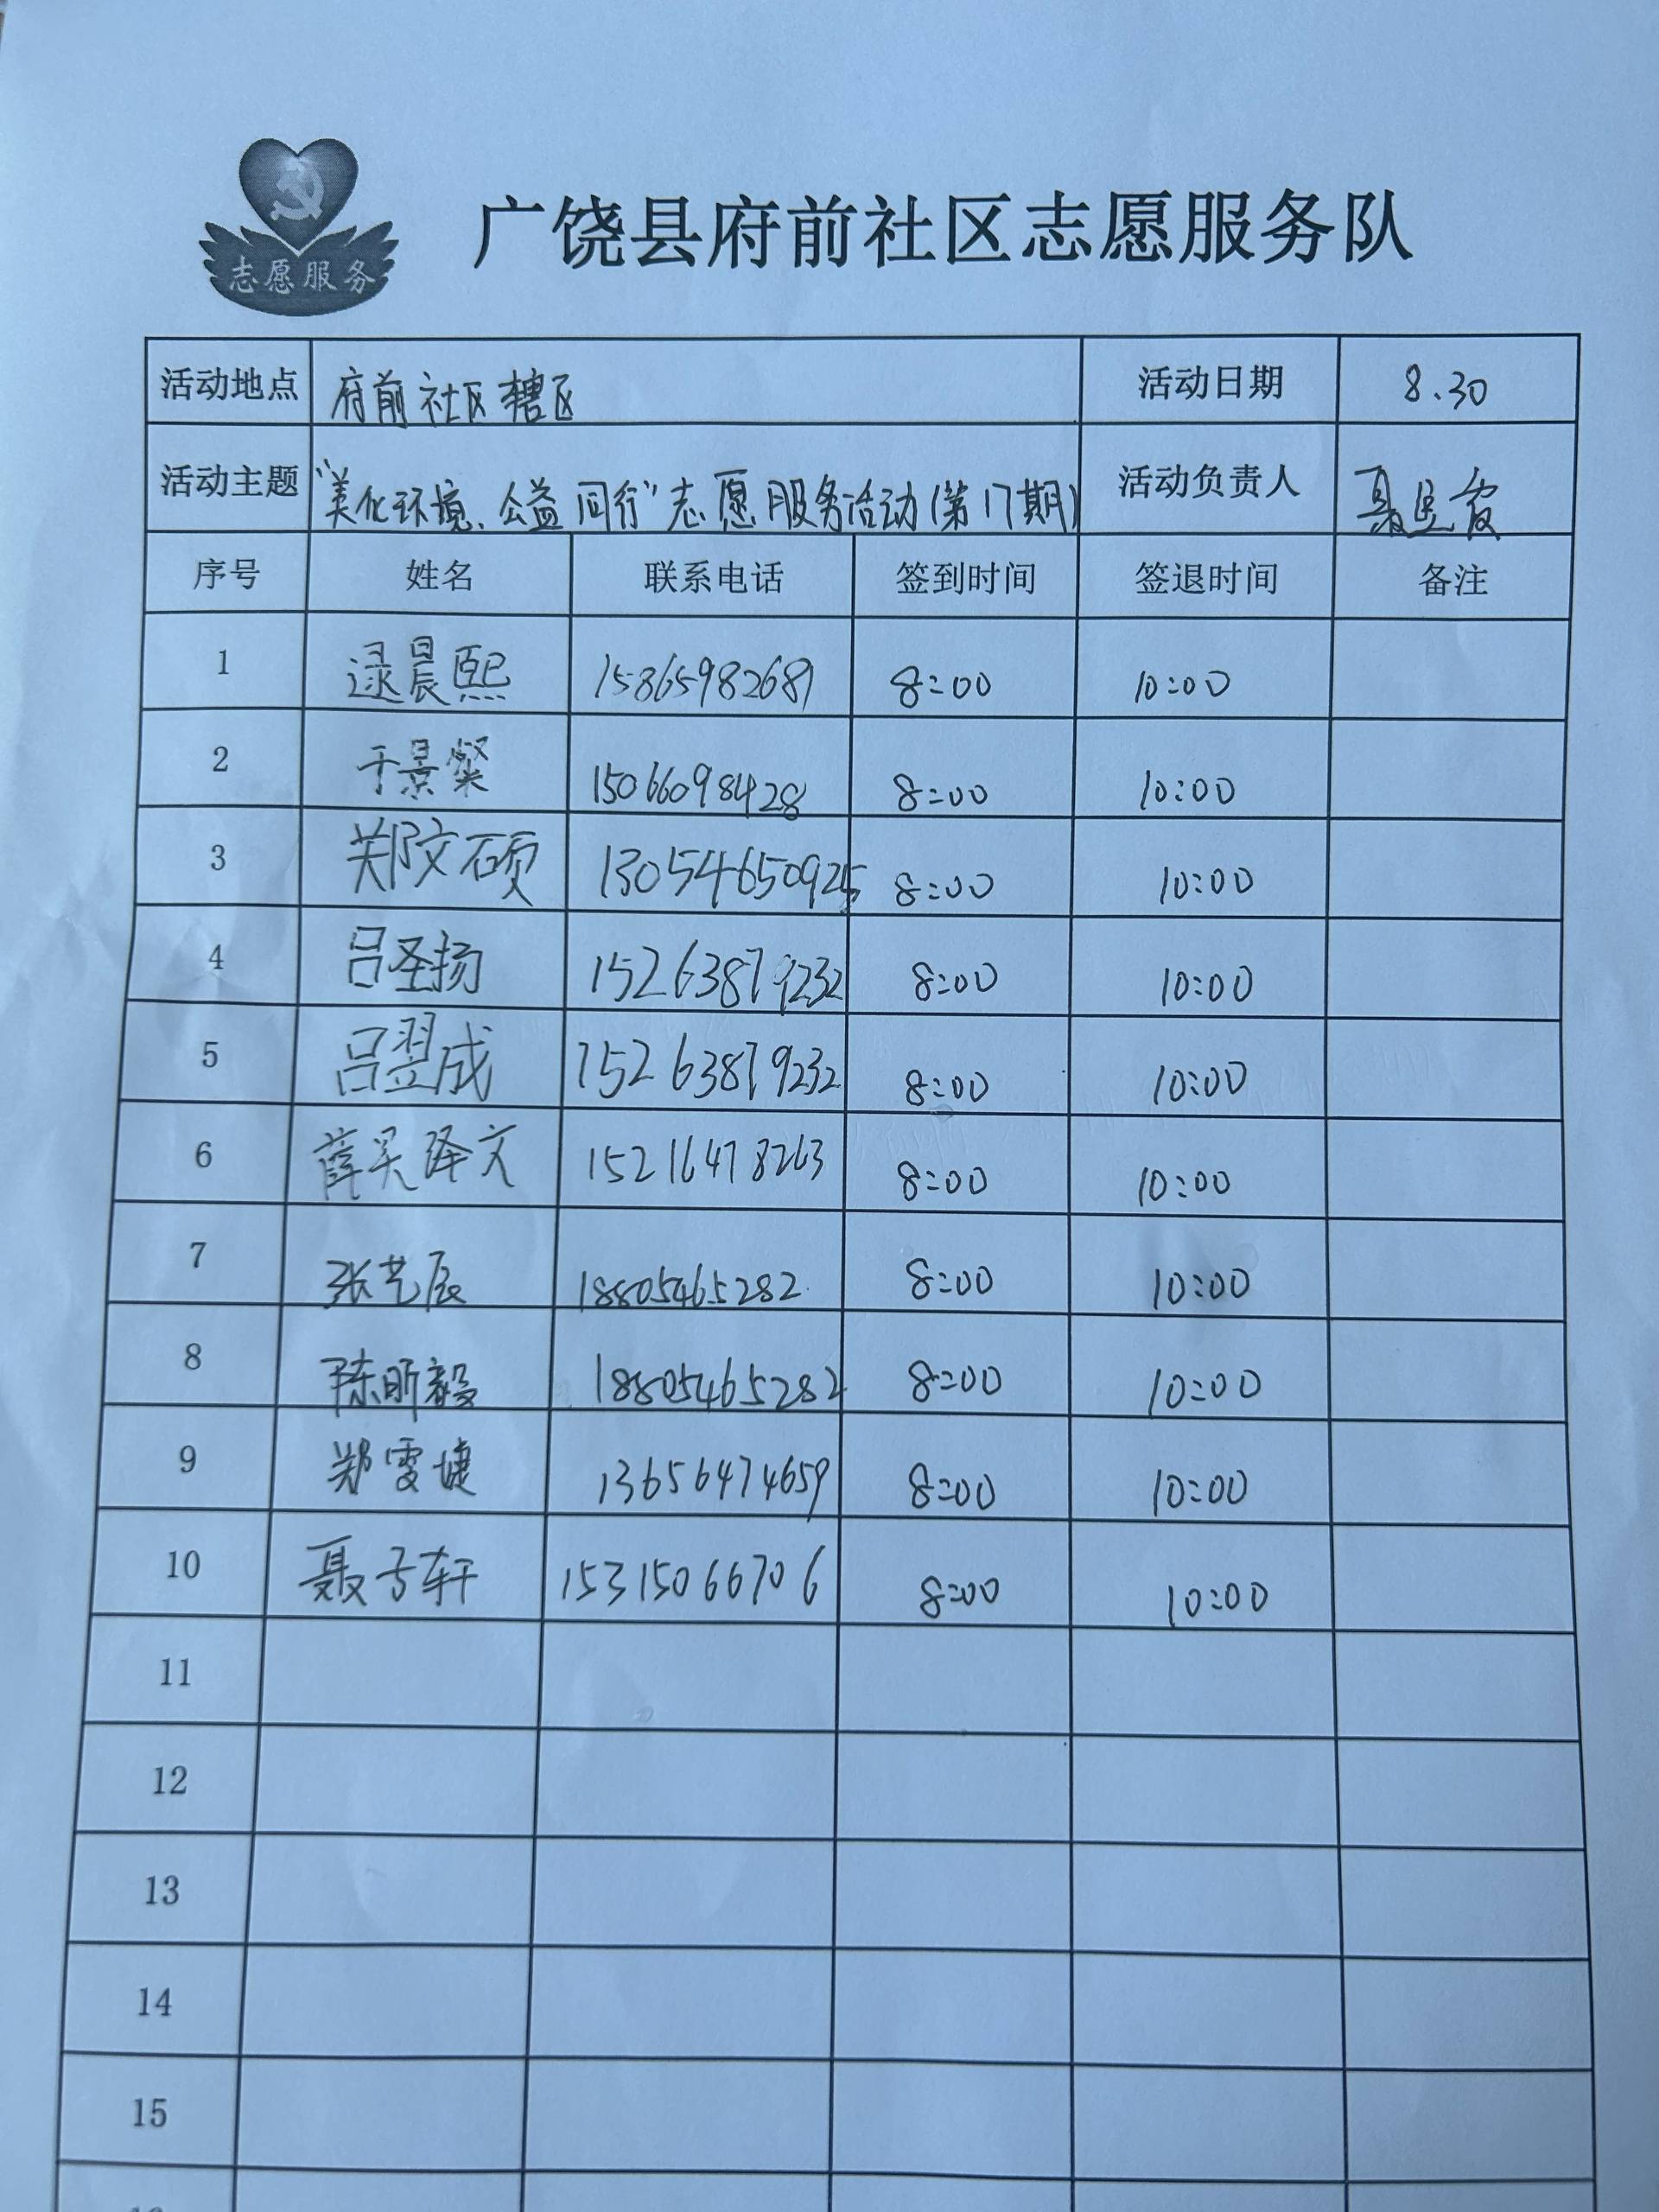 志愿服务
广饶县府前社区志愿服务队
活动地点 府前社区辖区 活动日期 8.30
活动主题 "美化环境、公益同行"志愿服务活动(第17期) 活动负责人
序号 姓名 联系电话 签到时间 签退时间 备注
1 逯晨熙 15865982681 8:00 10:00
2 于景粲 15066098428 8:00 10:00
3 郑文硕 13054650925 8:00 10:00
4 吕圣扬 15263879232 8:00 10:00
5 吕翌成 15263879232 8:00 10:00
6 薛吴泽文 15216478263 8:00 10:00
7 张艺辰 18805465282 8:00 10:00
8 陈昕毅 18805465282 8:00 10:00
9 郑雯婕 13656474659 8:00 10:00
10 聂子轩 15315066706 8:00 10:00
11
12
13
14
15